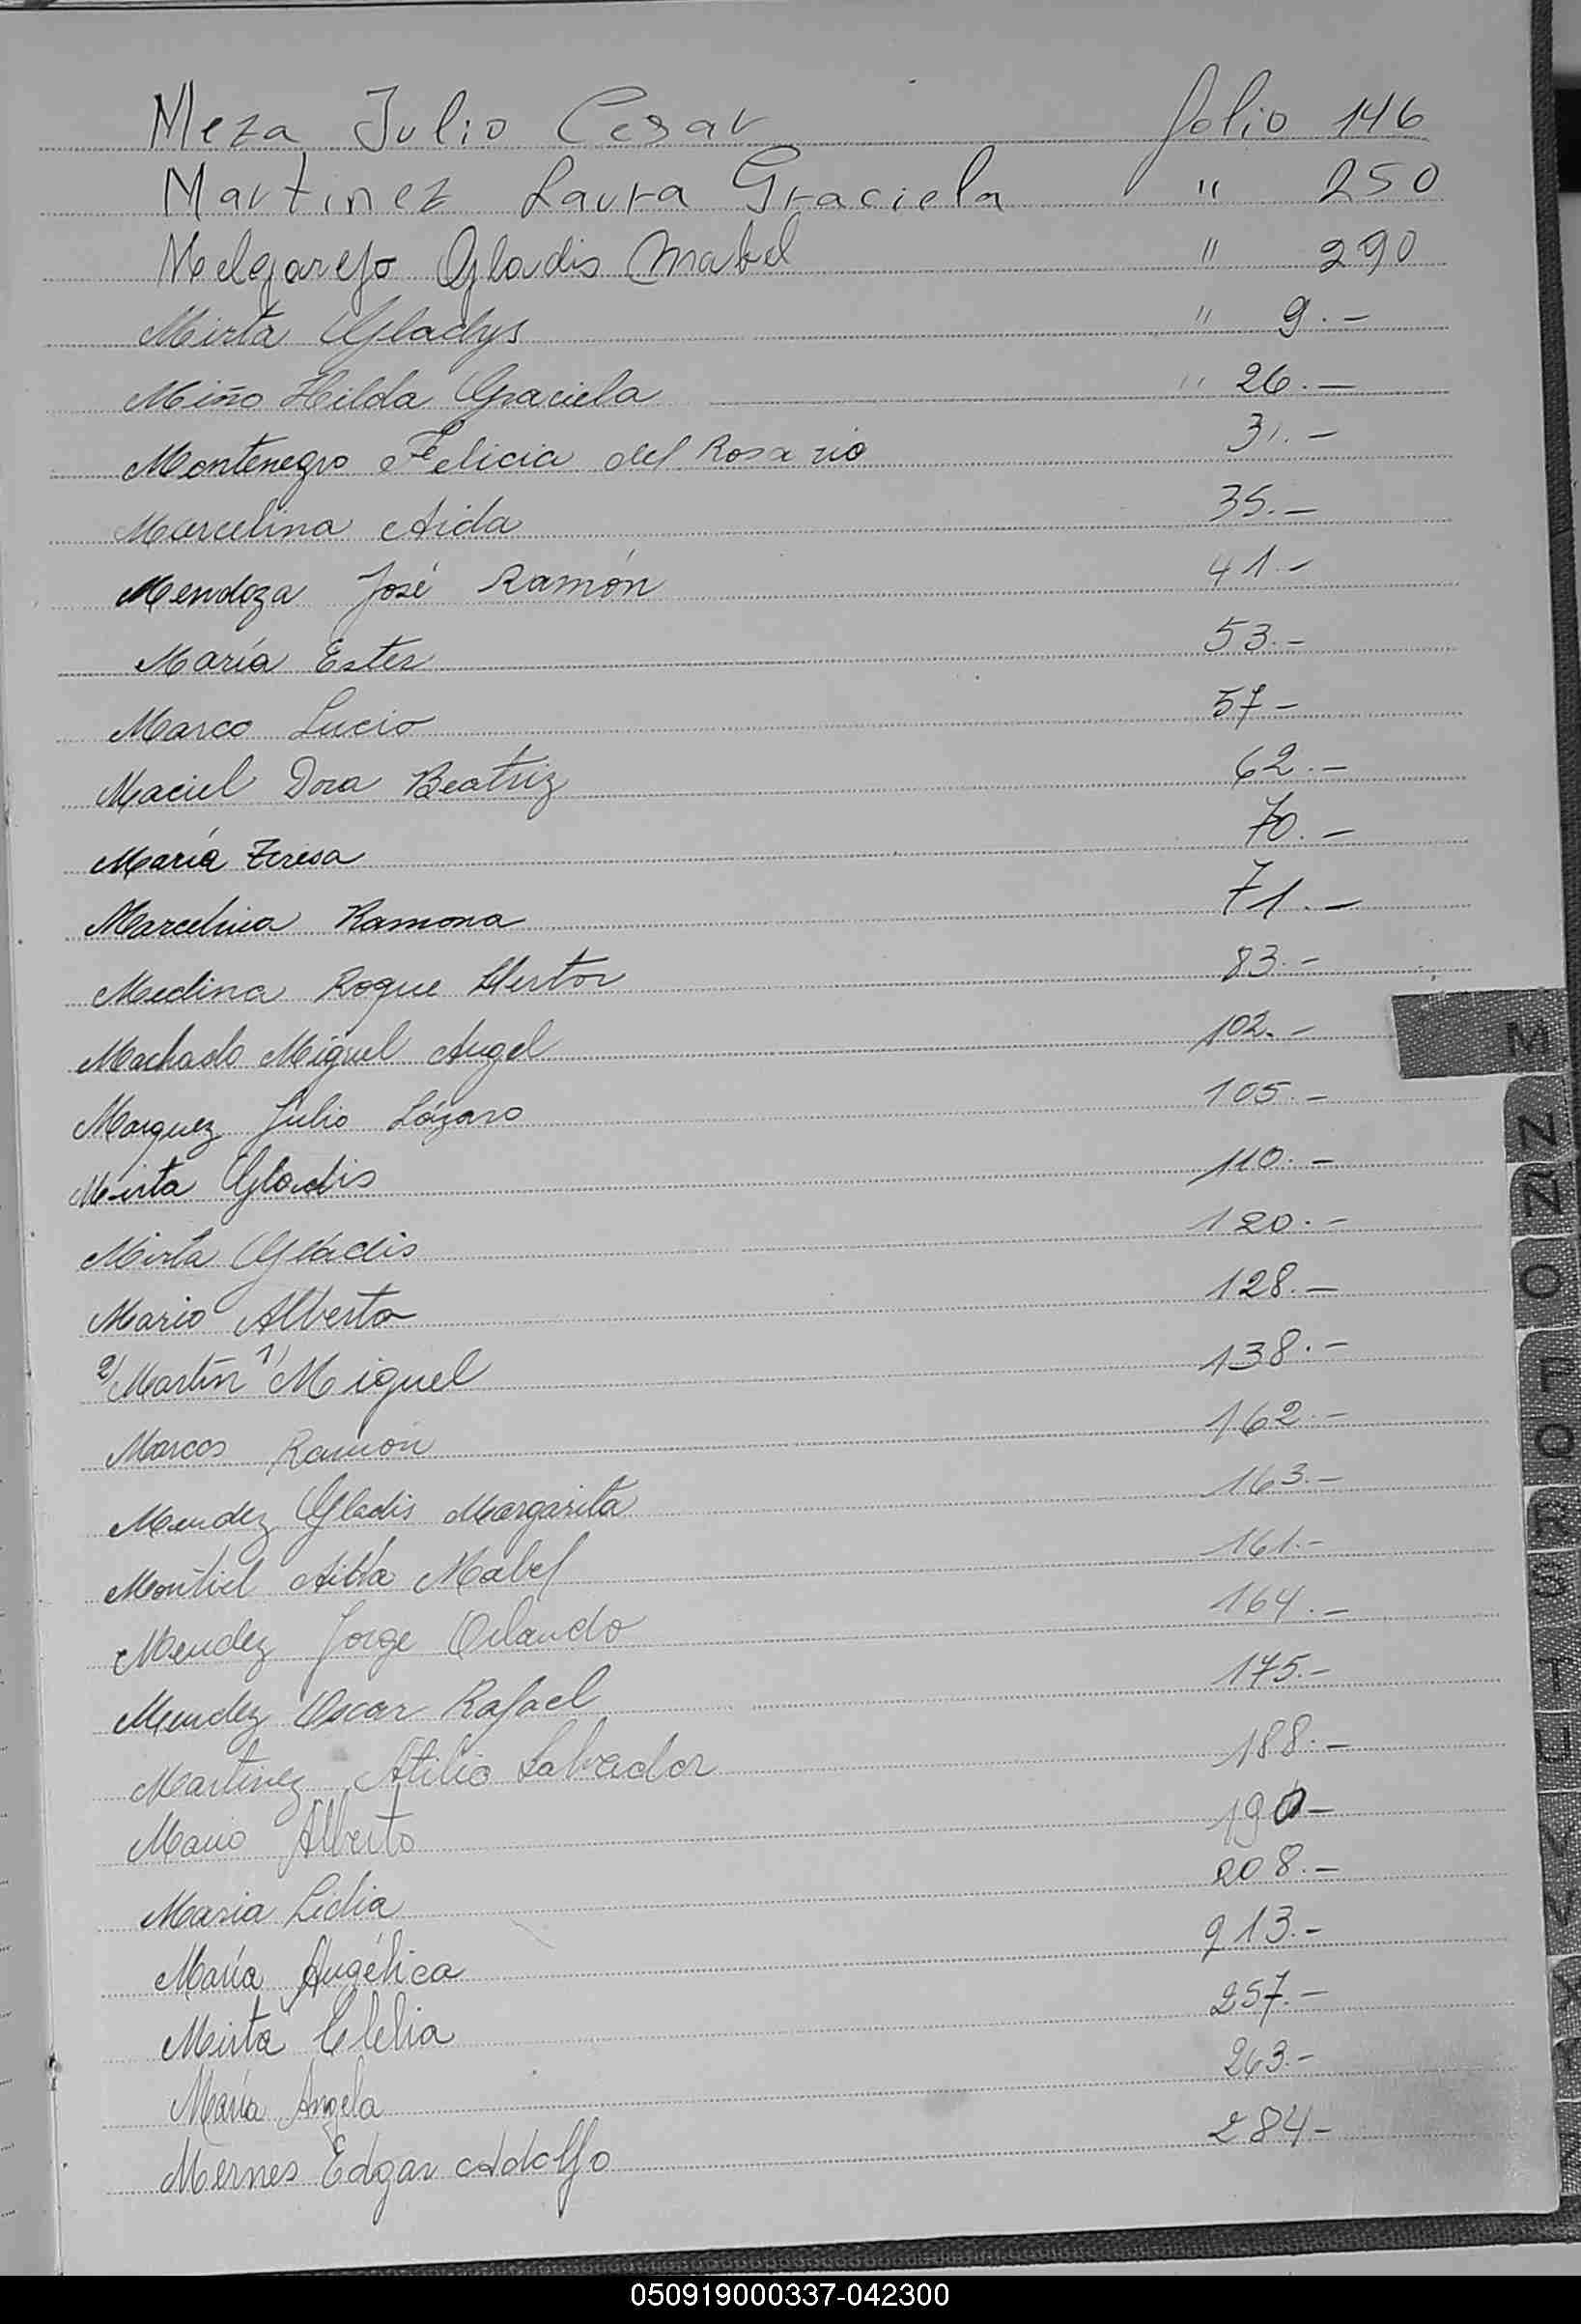 Meza Julio Cesar folio 146
Martinez Laura Graciela " 250
Melgarejo Gladis Mabel " 290
Mirta Gladys " 9.-
Miño Hilda Graciela " 26.-
Montenegro Felicia del Rosario 31.-
Marcelina Aida 35.-
Mendoza José Ramón 41.-
María Ester 53.-
Marco Lucio 57-
Maciel Dora Beatriz 62.-
María Teresa 70.-
Marcelina Ramona 71.-
Medina Roque Hector 83.-
Machado Miguel Angel 102.-
Marquez Julio Lázaro 105.-
Mirta Gladis 110.-
Mirta Gladis 120.-
Mario Alberto 128.-
2/ Martín 1/ Miguel 138.-
Marcos Ramón 162.-
Mendez Gladis Margarita 163.-
Montiel Mabel 161.-
Mendez Jorge Orlando 164.-
Mendez Oscar Rafael 175.-
Martinez Atilio Salvador 188.-
Mario Alberto 190-
Maria Lidia 208.-
María Angélica 213.-
Mirta Clelia 257.-
María Angela 263.-
Mernes Edgar Adolfo 284-
M
N
Ñ
O
P
Q
R
S
T
U
V
050919000337-042300